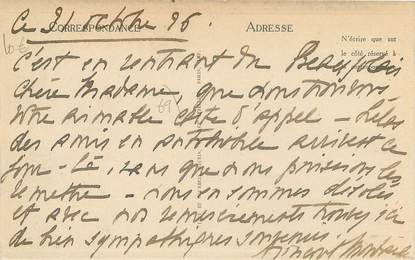 Ce 21 octobre 26.
CORRESPONDANCE
ADRESSE
N'écrire que sur
le côté réservé à
10 €
C'est en rentrant du Beaujolais
chère Madame, que nous trouvons
votre aimable carte d'appel - Hélas
des amis en automobile arrivent ce
jour-là, sans que nous puissions les
remettre - nous en sommes désolés
et avec nos remerciements trouvez ici
de bien sympathiques souvenirs.